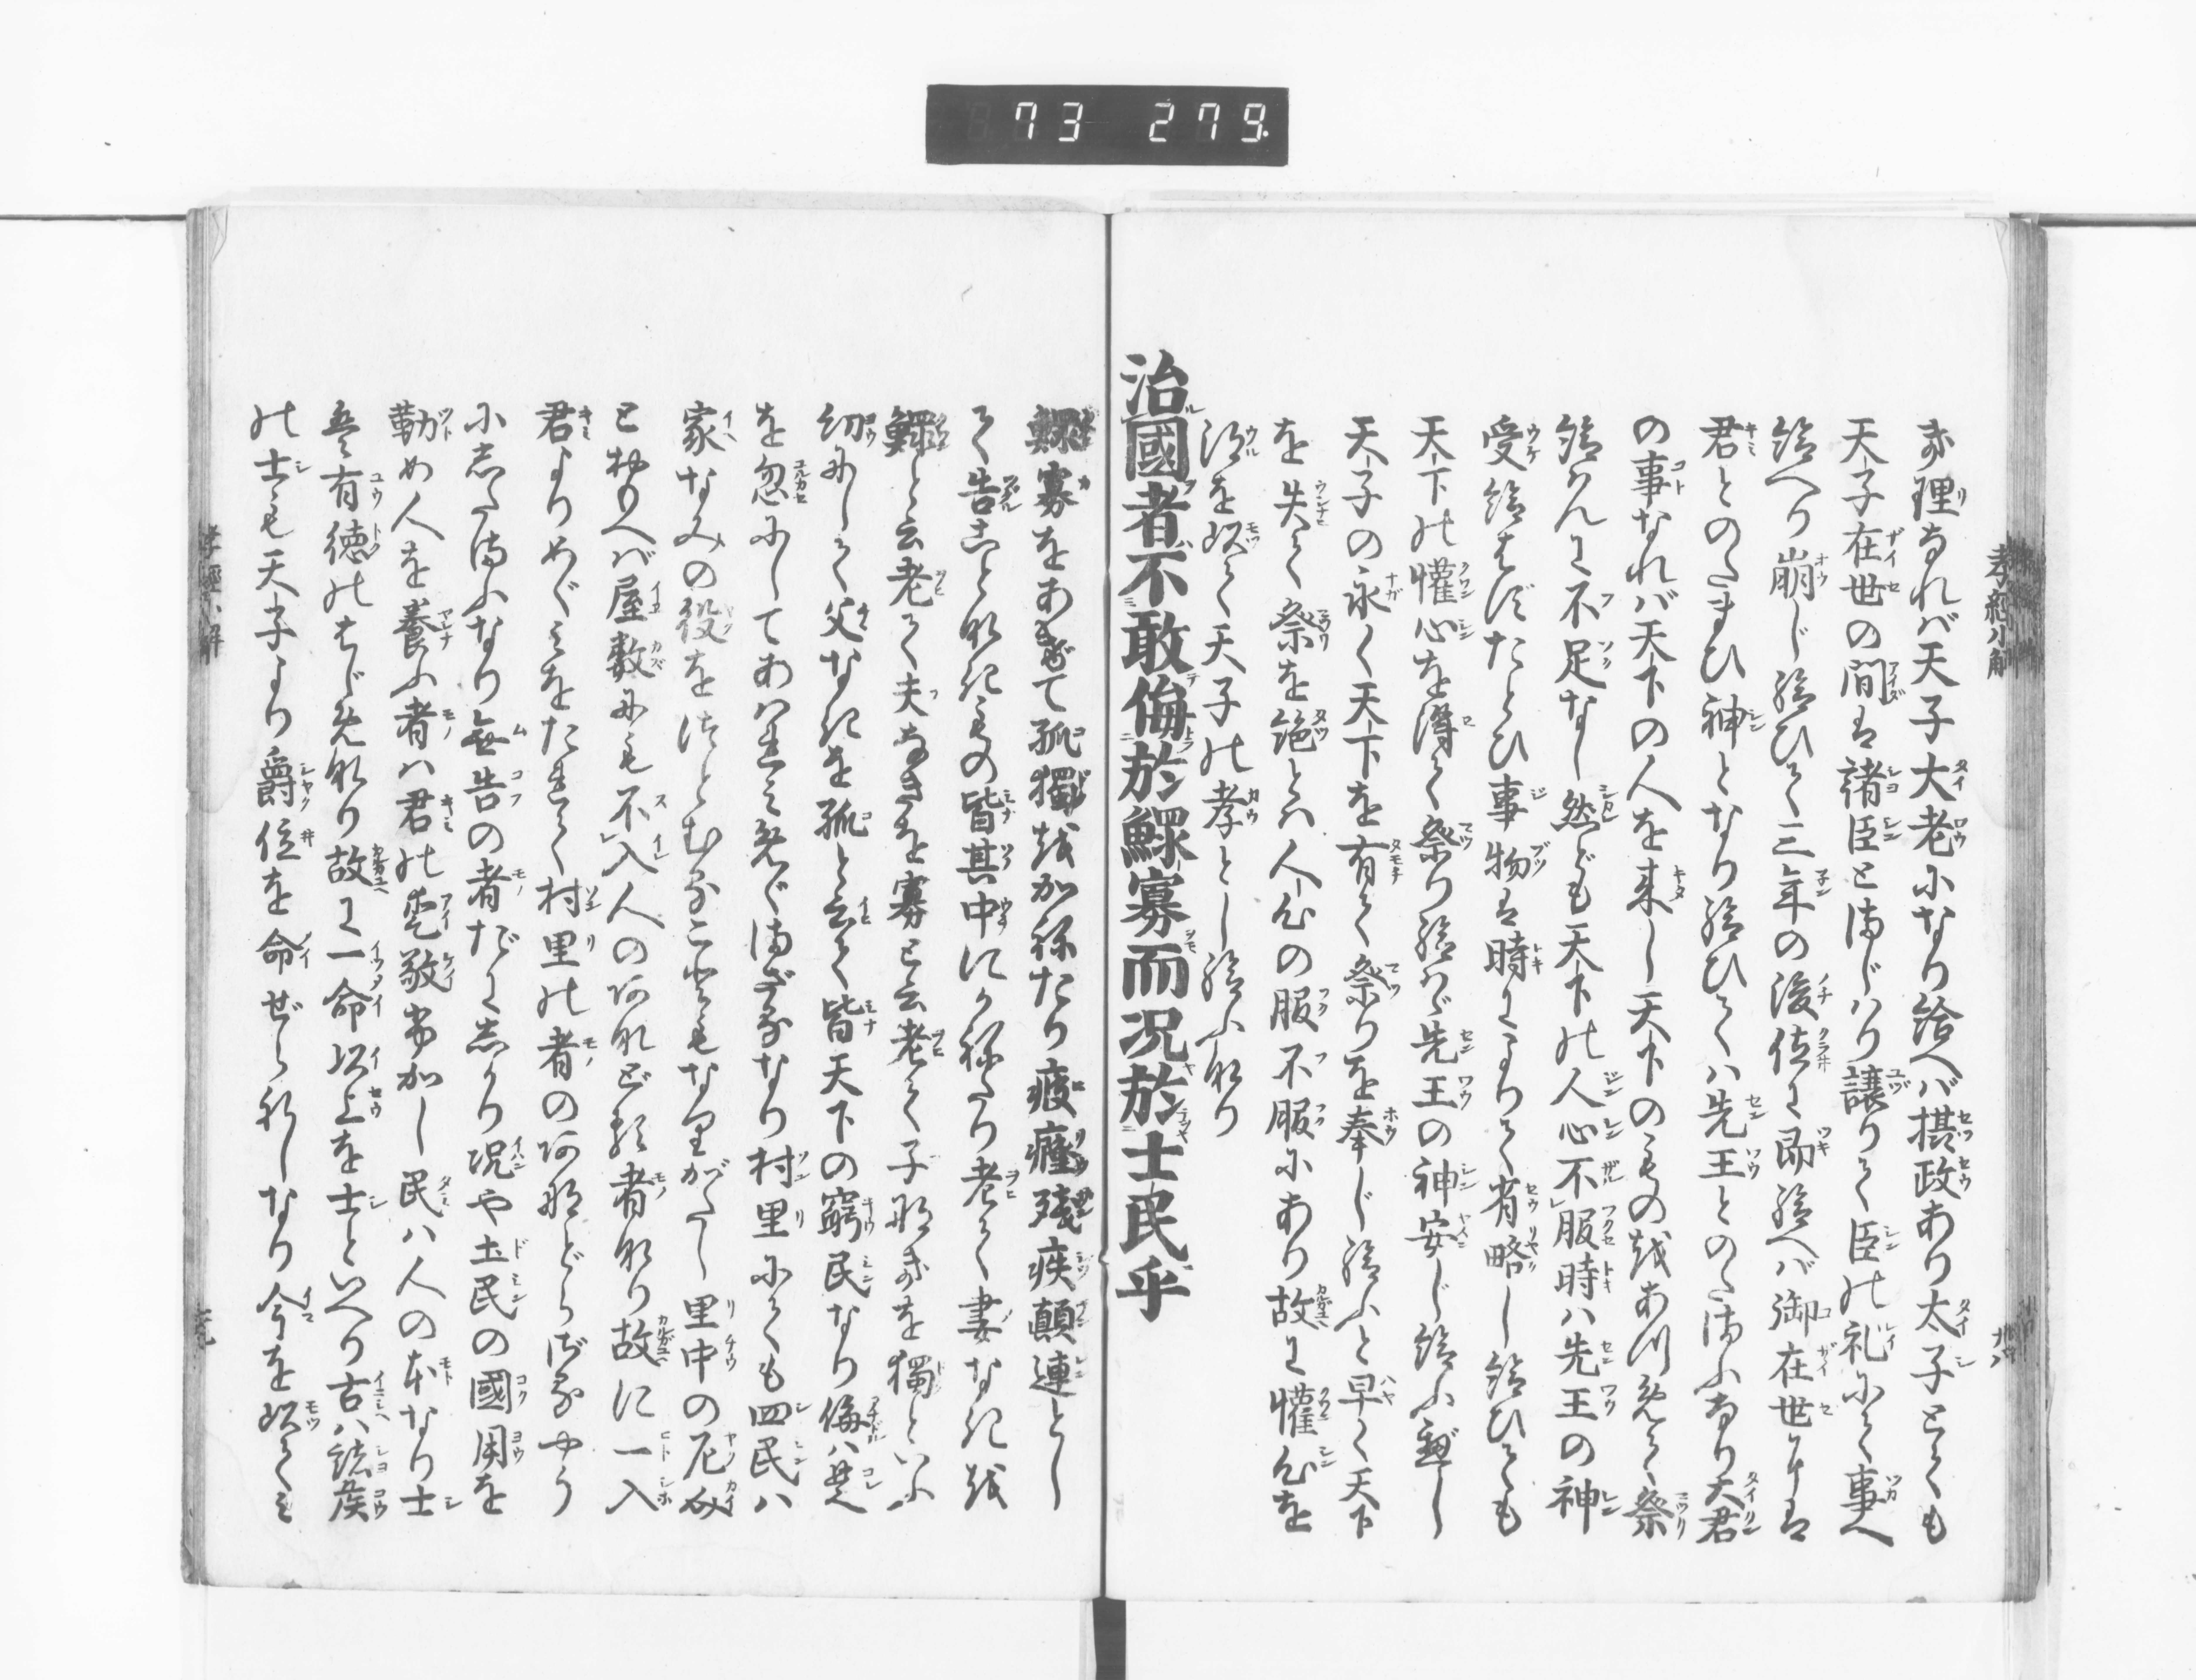 73 279.
孝經小解
き理なれバ天子大老になり給へバ摂政あり太子とても
天子在世の間は諸臣とまじハり譲りて臣の礼にて事へ
給へり崩じ給ひて三年の後位に即給へバ御在世中は
君とのたまひ神となり給ひてハ先王とのたまふなり大君
の事なれバ天下の人を来し天下のもの をあつめて祭
給ハんに不足なし然ども天下の人心不服時ハ先王の神
受給はずたとひ事物は時によりて省略し給ひても
天下の懽心を得て祭り給ハゞ先王の神安じ給ふべし
天子の永く天下を有て祭りを奉じ給ふと早く天下
を失て祭を絶とハ人心の服不服にあり故に懽心を
得を以て天子の孝とし給ふなり
治國者不敢侮於鰥寡而況於士民乎
鰥寡をあげて孤獨をかねたり疲癃殘疾顛連とし
て告ることなきもの皆其中にかねたり老て妻なきを
鰥と云老て夫なきを寡と云老て子なきを獨といふ
幼にして父なきを孤と云て皆天下の窮民なり侮ハ是
を忽にしてあハれミめぐまざるなり村里にても四民ハ
家なみの役をつとむることもなりがたし里中の厄介
とおもへバ屋数にも不入人のあなどる者なり故に一入
君よりめぐミをたれて村里の者のあなどらざるやう
にしたまふなり無告の者だにしかり況や士民の國用を
勤め人を養ふ者ハ君の愛敬あかし民ハ人の本なり士
は有徳のはじめなり故に一命以上を士といへり古ハ諸侯
の士も天子より爵位を命ぜられしなり今を以てミ
孝經小解